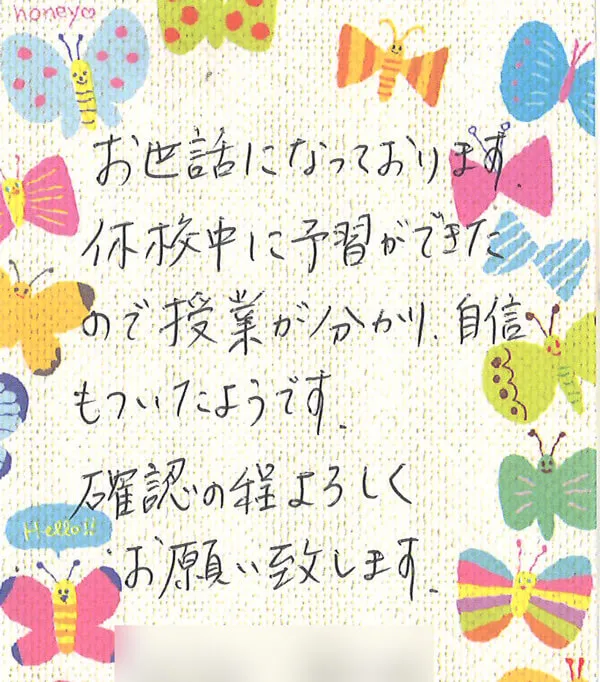 honey♡
お世話になっております.
休校中に予習ができた
ので授業が分かり.自信
もついたようです.
確認の程よろしく
Hello!!
お願い致します.